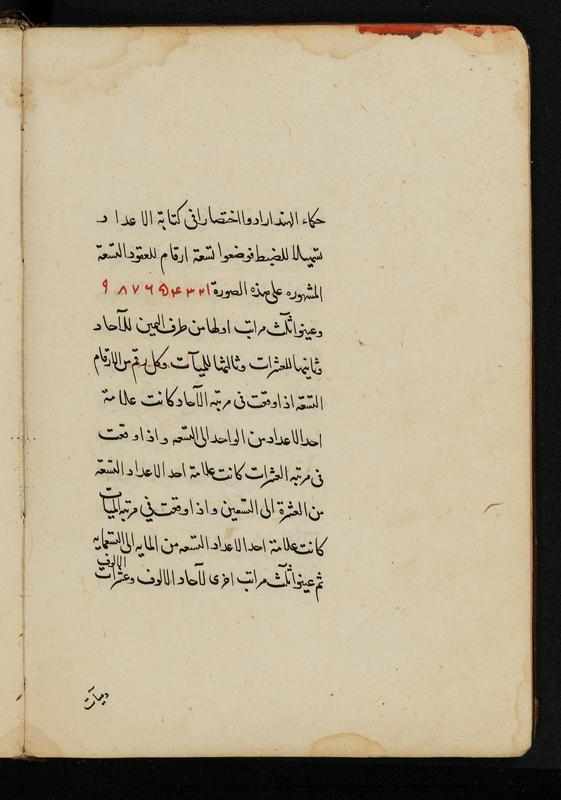 حكماء الهند ارادوا اختصارا فى كتابة الاعداد
تسهيلا للضبط فوضعوا تسعة ارقام للعقود التسعة
المشهوره على هذه الصورة ١ ٢ ٣ ۴ ۵ ٦ ٧ ٨ ٩
وعينوا ثلث مراتب اولها من طرف اليمين للآحاد
وثانيها للعشرات وثالثها للميآت وكل رقم من الارقام
التسعه اذا وقعت فى مرتبة الآحاد كانت علامة
احد الاعداد من الواحد الى التسعه واذا وقعت
فى مرتبه العشرات كانت علامة احد الاعداد التسعة
من العشرة الى التسعين واذا وقعت في مرتبه الميآت
كانت علامة احد الاعداد التسعه من المايه الى التسعمايه
ثم عينوا ثلث مراتب اخرى لآحاد الالوف وعشرات الالوف
وميآت